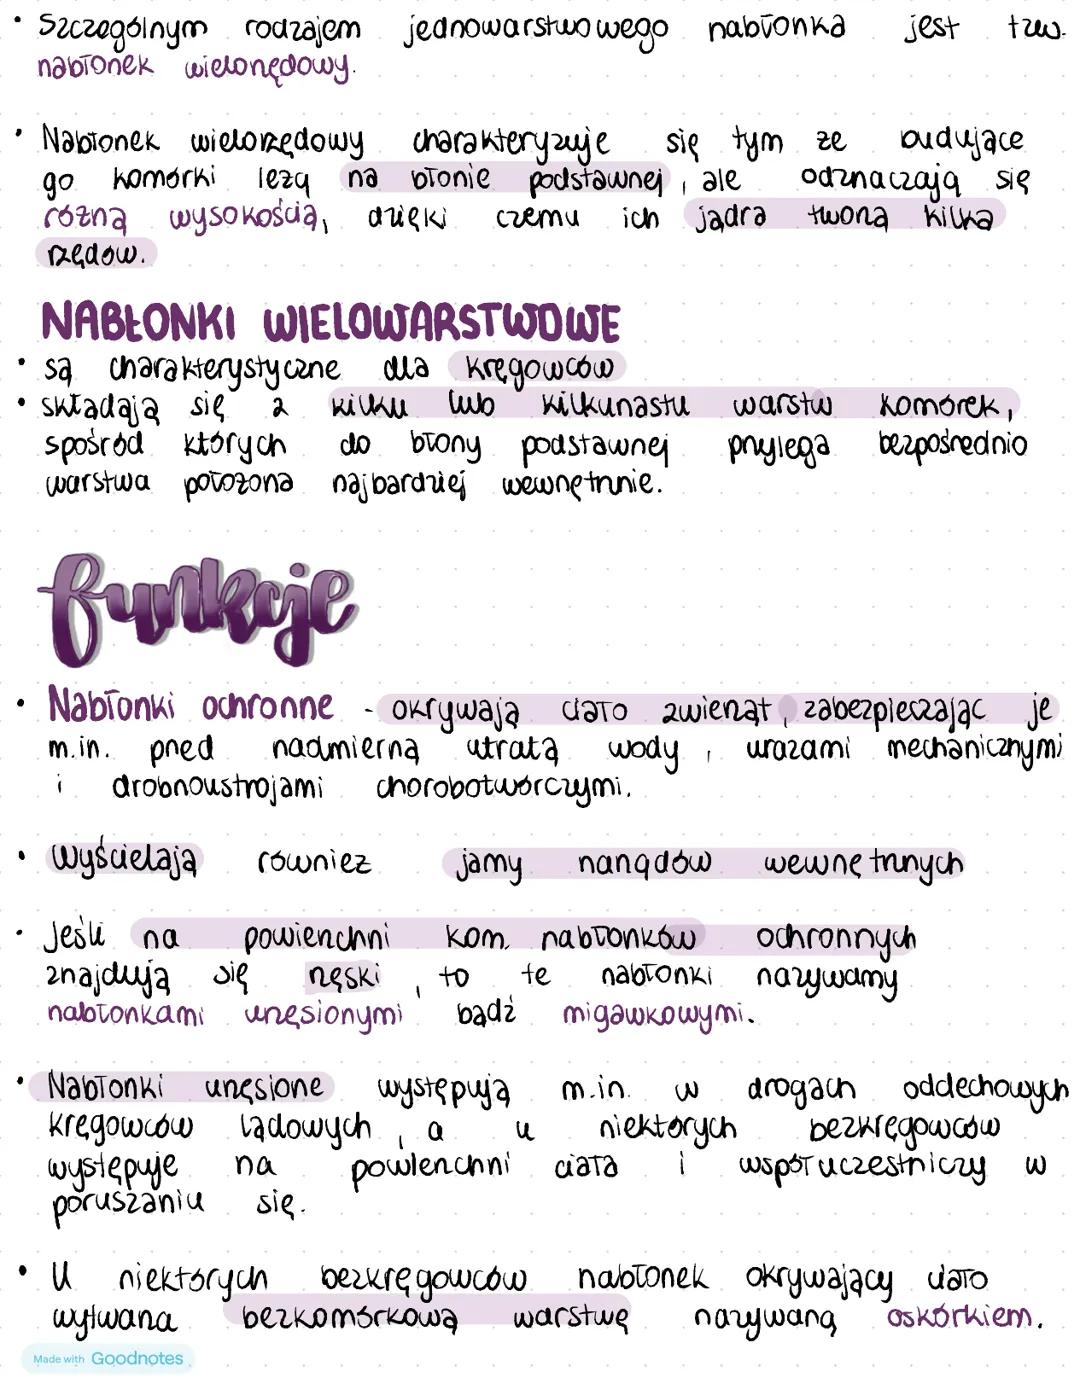 • Szczególnym rodzajem jednowarstwowego nabłonka jest tzw.
nabłonek wielorzędowy.
• Nabłonek wielorzędowy charakteryzuje się tym że budujące
go komórki leżą na błonie podstawnej, ale odznaczają się
różną wysokością, dzięki czemu ich jądra tworzą kilka
rzędów.
NABŁONKI WIELOWARSTWOWE
• są charakterystyczne dla kręgowców
• składają się z kilku lub kilkunastu warstw komórek,
spośród których do błony podstawnej przylega bezpośrednio
warstwa położona najbardziej wewnętrznie.
funkcje
• Nabłonki ochronne - okrywają ciało zwierząt, zabezpieczając je
m.in. przed nadmierną utratą wody, urazami mechanicznymi
i drobnoustrojami chorobotwórczymi.
• Wyścielają również jamy narządów wewnętrznych
• Jeśli na powierzchni kom. nabłonków ochronnych
znajdują się rzęski, to te nabłonki nazywamy
nabłonkami urzęsionymi bądź migawkowymi.
• Nabłonki urzęsione występują m.in. w drogach oddechowych
kręgowców lądowych, a u niektórych bezkręgowców
występuje na powierzchni ciała i współuczestniczy w
poruszaniu się.
• U niektórych bezkręgowców nabłonek okrywający ciało
wytwarza bezkomórkową warstwę nazywaną oskórkiem.
Made with Goodnotes